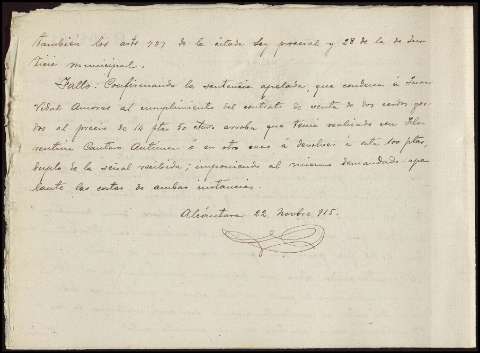 también los arts 727 de la citada Ley procesal y 28 de la de Jus-
ticia municipal.
Fallo: Confirmando la sentencia apelada, que condena á Juan
Vidal Amores al cumplimiento del contrato de venta de dos cerdos gor-
dos al precio de 14 ptas 50 ctmos arroba que tenía realizado con Flo-
rentino Cantero Antúnez ó en otro caso á devolver a este 100 ptas,
duplo de la señal recibida; imponiendo al mismo demandado ape-
lante las costas de ambas instancias.
Alcántara 22 Novbre 915.